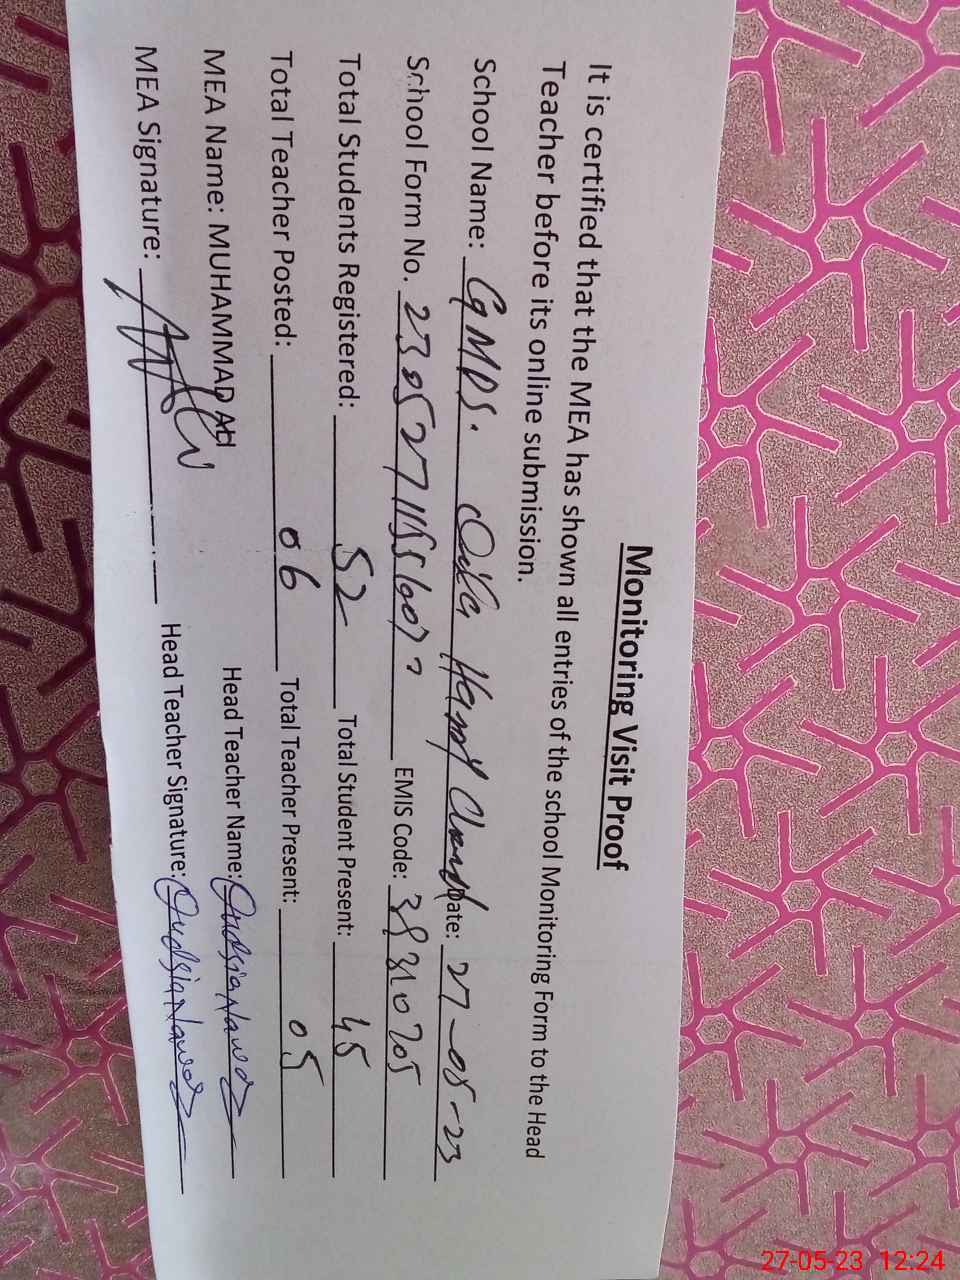 Monitoring Visit Proof
It is certified that the MEA has shown all entries of the school Monitoring Form to the Head
Teacher before its online submission.
School Name: GMPS. Date: 27-05-23
School Form No. EMIS Code:
Total Students Registered: 52 Total Student Present: 45
Total Teacher Posted: 06 Total Teacher Present: 05
MEA Name: MUHAMMAD ALI Head Teacher Name: Qudsia Nawaz
MEA Signature: Head Teacher Signature: Qudsia Nawaz
27-05-23 12:24